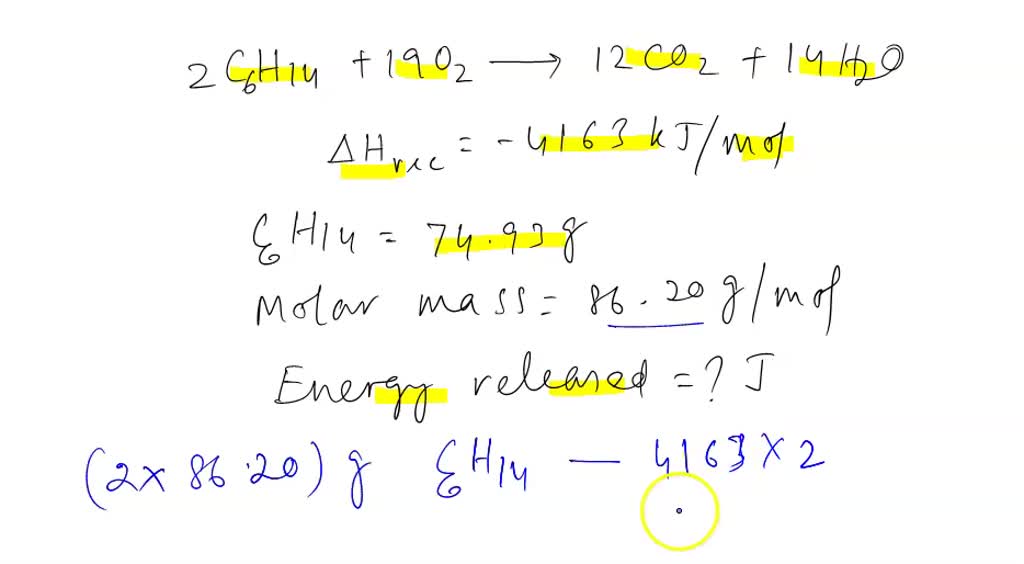 2C₆H14 + 19O₂ ⟶ 12CO₂ + 14H₂O
ΔHrxc = -4163 kJ/mol
C₆H14 = 74.93g
Molar mass = 86.20 g/mol
Energy released = ? J
(2×86.20) g C₆H14 — 4163×2